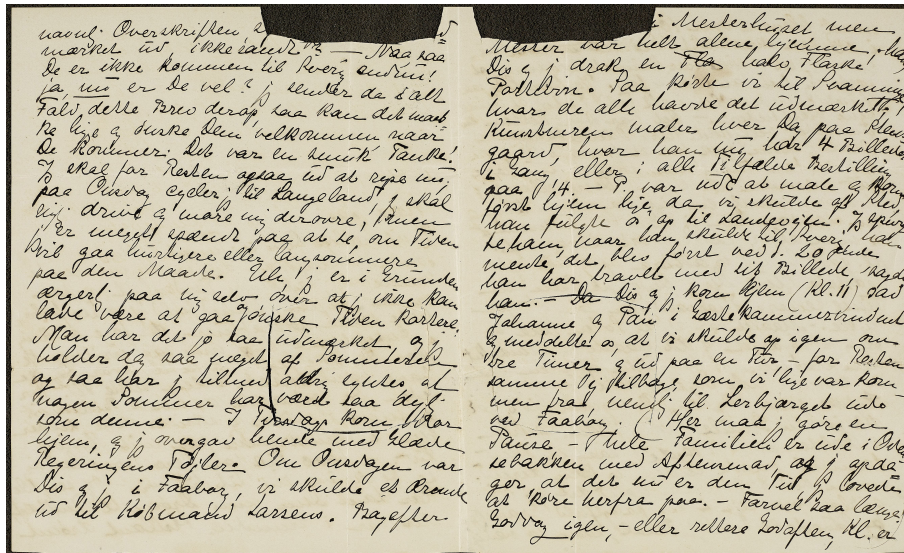 navnl. Overskriften
mærket ud, ikke sandt? — Naa saa
De er ikke kommen til Sverig endnu!
ja, nu er De vel? j sender da i alt
Fald dette Brev derop saa kan det maa-
ke lige ønske Dem velkommen naar
De kommer. Det var en smuk Tanke!
J skal for Resten ogsaa ud at rejse nu,
paa Onsdag cycler j til Langeland, j skal
lig drive og more mig derovre,
Er meget spændt paa at se, om Tiden
vil gaa hurtigere eller langsommere
paa den Maade. Uh, j er i Grunden
ærgerl. paa mig selv over at j ikke kan
lade være at gaa ønske Tiden kortere,
Man har det jo saa udmærket og j
holder da saa meget af Sommeren
og saa har j tilmed aldrig syntes at
nogen Sommer har været saa dejl.
som denne. — I Tirsdags kom Mor
hjem, og j overgav hende med Glæde
Regeringens Tøjler. Om Onsdagen var
Dis og j i Faaborg, vi skulde et Ærende
ud til Købmand Larsens. Bagefter
i Mesterhuset men
Mester var helt alene hjemme, han,
Dis og j drak en halv Flaske
Portvin. Saa kørte vi til Svanninge
hvor de alle havde det udmærket,
Kunstneren maler hver Da paa
gaard, hvor han nu har 4 Billeder
i Gang eller i alle Tilfælde Bestilling
paa 4. — P. var ude at male og kom
først hjem lige da vi skulde af Sted
han fulgte os op til Landevejen. J spurgte
ham, naar han skulde til Sverig, han
mente det blev først ved d. 20ende
han har travlt med sit Billede, sagde
han. — Da Dis og j kom hjem (Kl. 11) sad
Johanne og Pan i Gæstekammervinduet
og meddelte os, at vi skulde op igen om
tre Timer og ud paa en Tur, — for Resten
samme Vej tilbage, som vi lige var kom
men fra nemlig til Lerbjærget ude
ved Faaborg. (Her maa j gøre en
Pause — hele Familien er ude i
sebakken med Aftensmad, og j opda-
ger, at det nu er den Tid j lovede
at køre herfra paa. — Farvel saa længe!
Goddag igen, — eller rettere Godaften, Kl. er